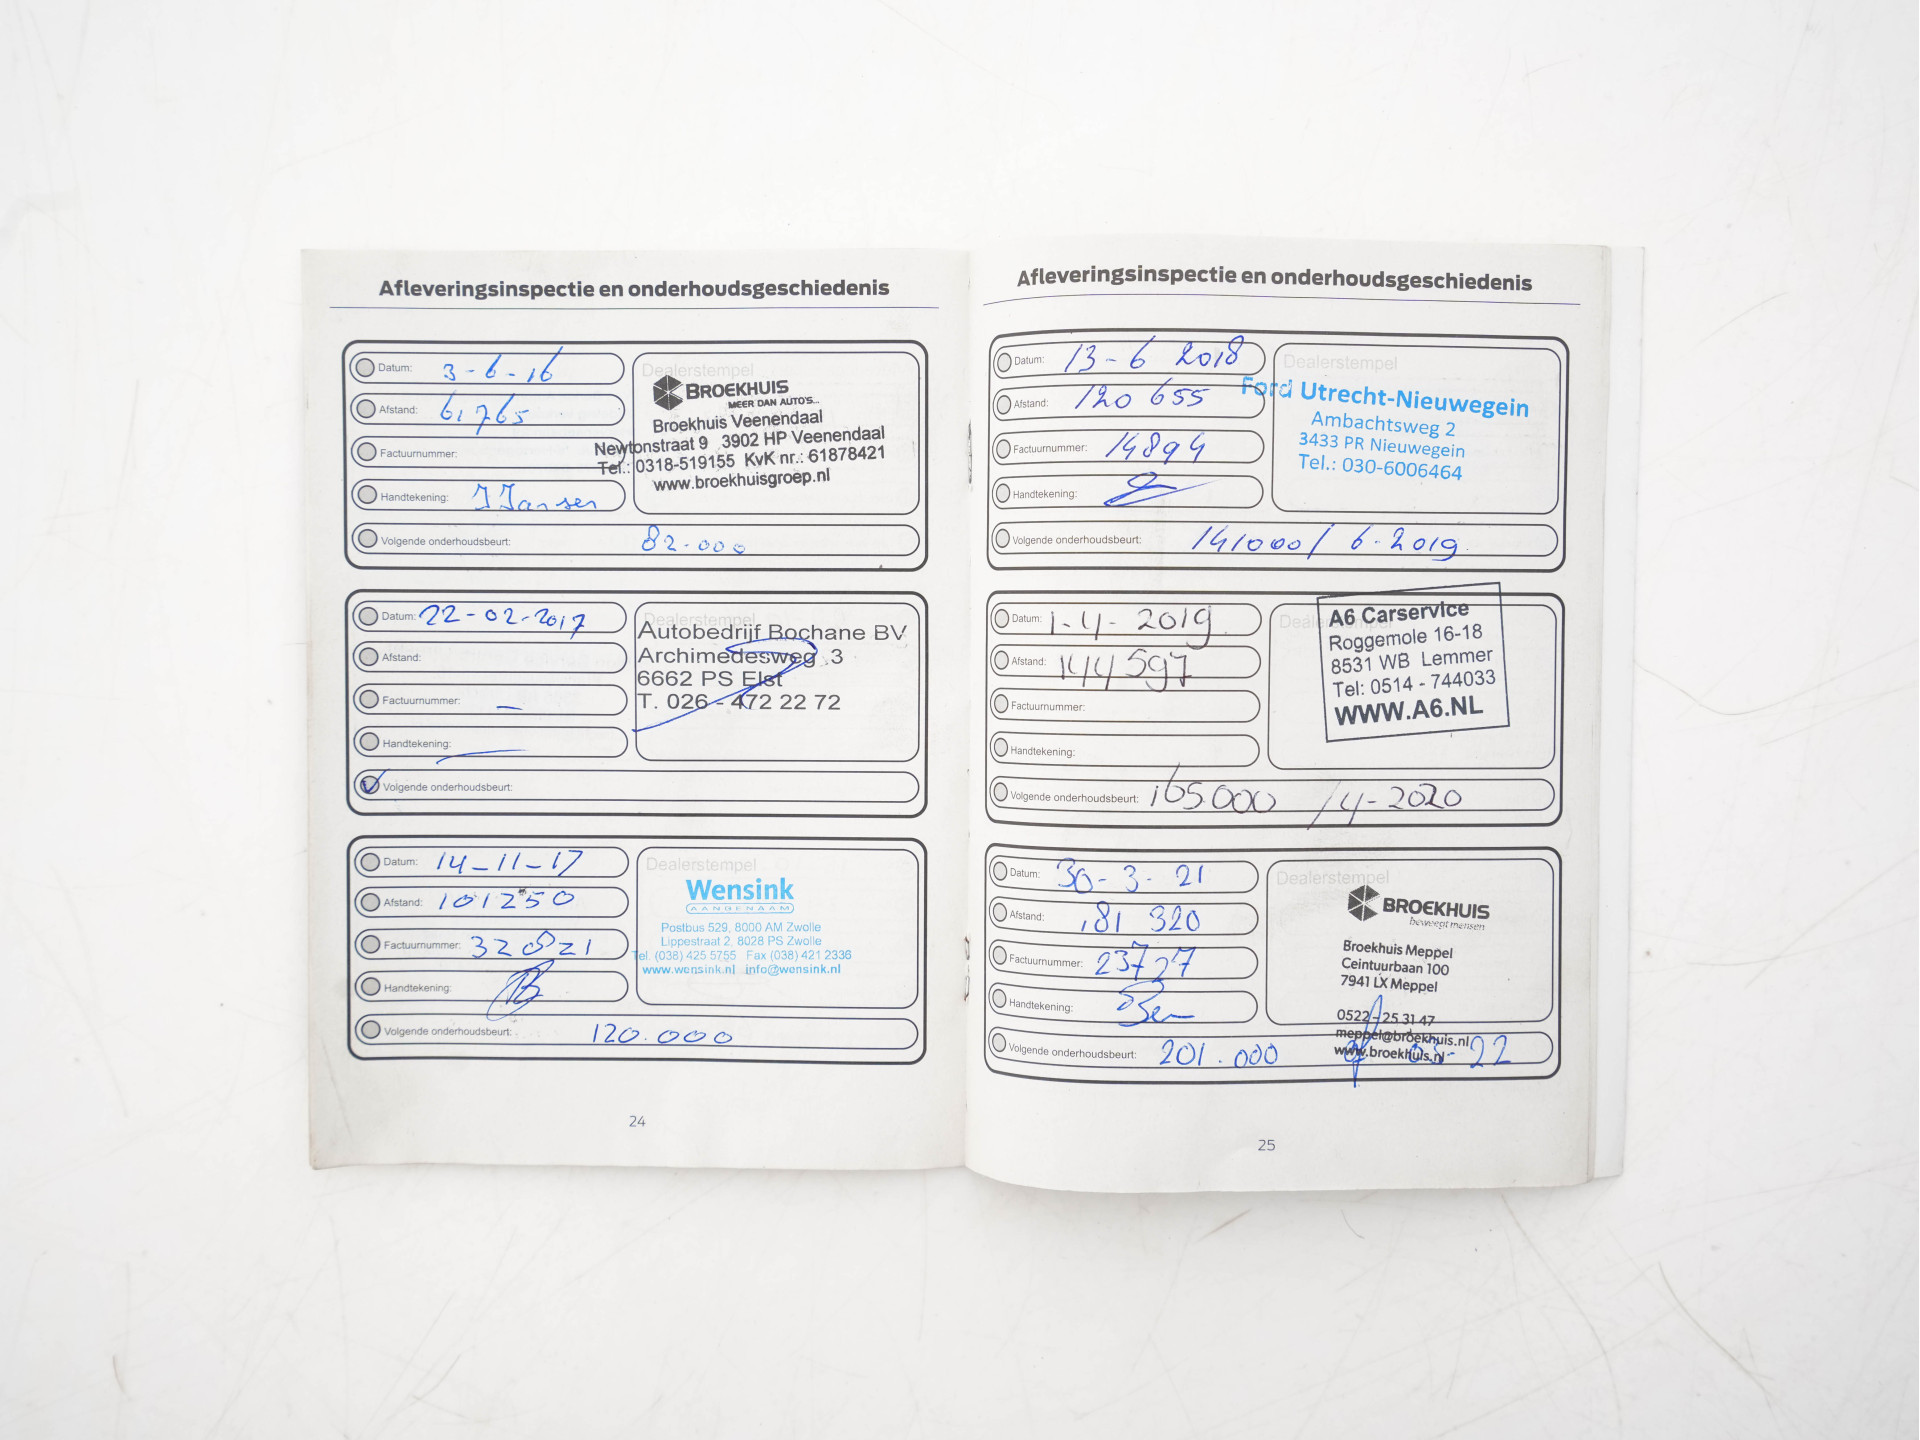 Afleveringsinspectie en onderhoudsgeschiedenis
Datum: 3-6-16
Afstand: 61765
Factuurnummer:
Handtekening: J Jansen
Volgende onderhoudsbeurt: 82.000
Dealerstempel
BROEKHUIS
MEER DAN AUTO'S...
Broekhuis Veenendaal
Newtonstraat 9 3902 HP Veenendaal
Tel.: 0318-519155 KvK nr.: 61878421
www.broekhuisgroep.nl
Datum: 22-02-2017
Afstand:
Factuurnummer: –
Handtekening:
Volgende onderhoudsbeurt:
Dealerstempel
Autobedrijf Bochane BV
Archimedesweg 3
6662 PS Elst
T. 026 - 472 22 72
Datum: 14-11-17
Afstand: 101250
Factuurnummer: 320821
Handtekening:
Volgende onderhoudsbeurt: 120.000
Dealerstempel
Wensink
AANGENAAM
Postbus 529, 8000 AM Zwolle
Lippestraat 2, 8028 PS Zwolle
Tel. (038) 425 5755 Fax (038) 421 2336
www.wensink.nl info@wensink.nl
24
Afleveringsinspectie en onderhoudsgeschiedenis
Datum: 13-6 2018
Afstand: 120 655
Factuurnummer: 14894
Handtekening:
Volgende onderhoudsbeurt: 141000 / 6-2019
Dealerstempel
Ford Utrecht-Nieuwegein
Ambachtsweg 2
3433 PR Nieuwegein
Tel.: 030-6006464
Datum: 1-4-2019
Afstand: 144597
Factuurnummer:
Handtekening:
Volgende onderhoudsbeurt: 165.000 / 4-2020
Dealerstempel
A6 Carservice
Roggemole 16-18
8531 WB Lemmer
Tel: 0514 - 744033
WWW.A6.NL
Datum: 30-3-21
Afstand: 181 320
Factuurnummer: 23727
Handtekening:
Volgende onderhoudsbeurt: 201.000 of 03-22
Dealerstempel
BROEKHUIS
beweegt mensen
Broekhuis Meppel
Ceintuurbaan 100
7941 LX Meppel
0522-25 31 47
meppel@broekhuis.nl
www.broekhuis.nl
25